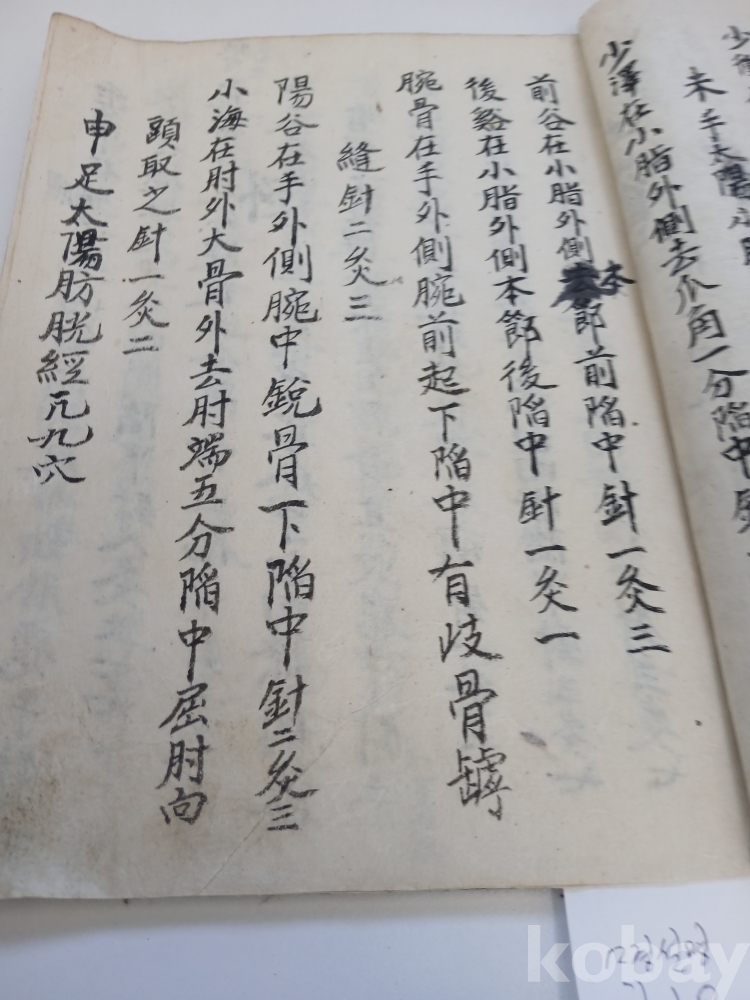 未手太陽小腸
少澤在小脂外側去爪角一分陷中
前谷在小脂外側本節前陷中針一灸三
後谿在小脂外側本節後陷中針一灸一
腕骨在手外側腕前起下陷中有歧骨罅
縫針二灸三
陽谷在手外側腕中銳骨下陷中針二灸三
小海在肘外大骨外去肘端五分陷中屈肘向
頭取之針一灸二
申足太陽肪胱經凡九穴
kobay